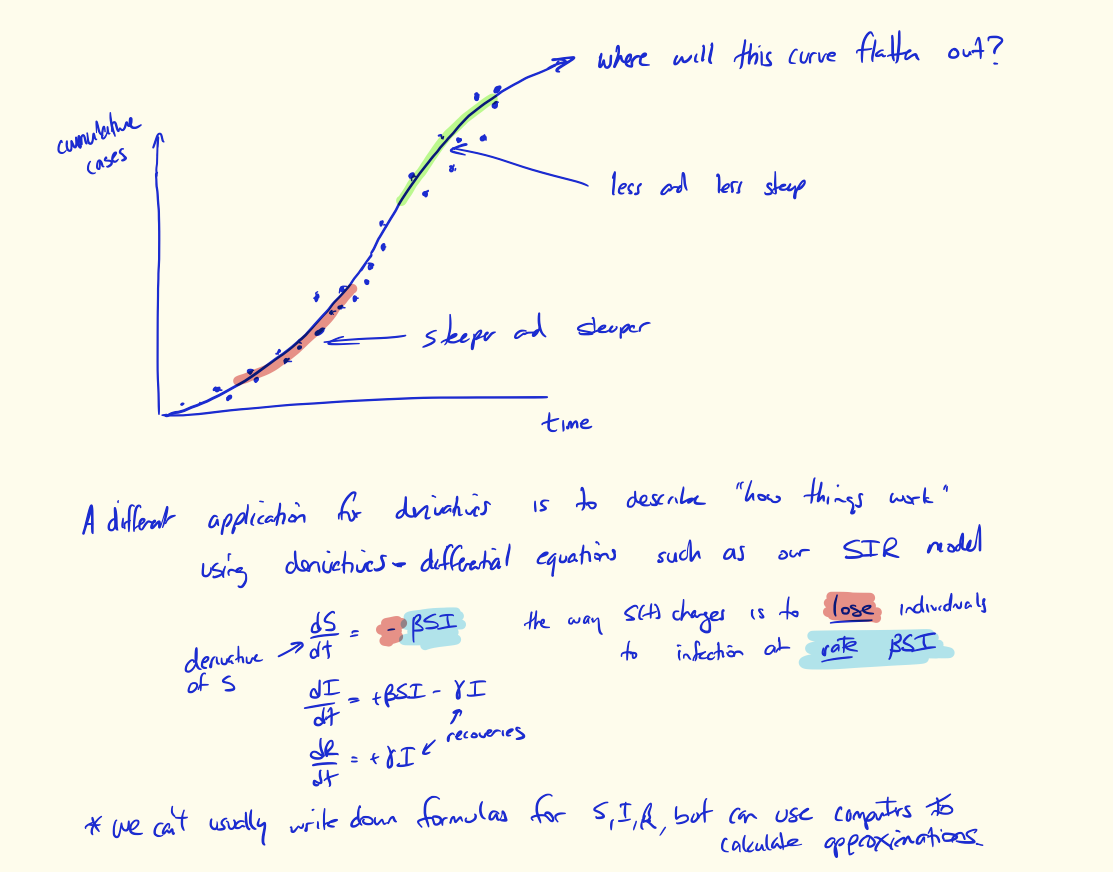 where will this curve flatten out?
cumulative
cases
less and less steep
steeper and steeper
time
A different application for derivatives is to describe "how things work"
using derivatives - differential equations such as our SIR model
dS/dt = - βSI
the way S(t) changes is to lose individuals
to infection at rate βSI
derivative
of S
dI/dt = +βSI - γI
recoveries
dR/dt = +γI
* we can't usually write down formulas for S, I, R, but can use computers to
calculate approximations.